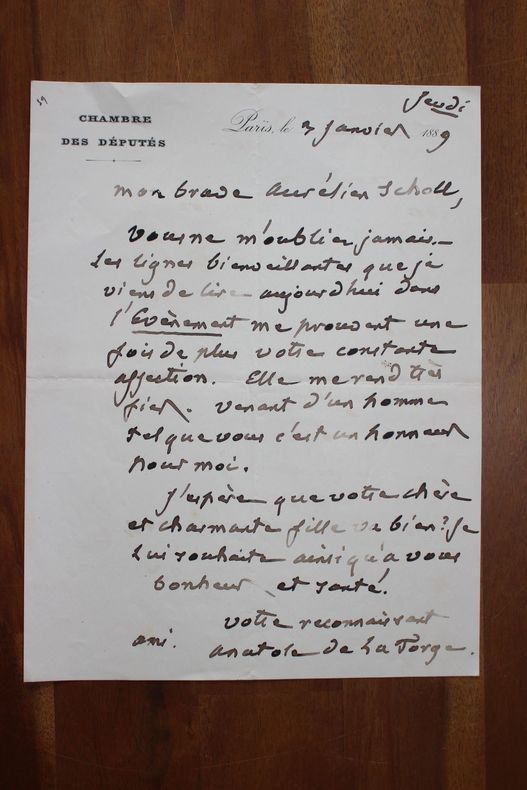 59
Jeudi
CHAMBRE
DES DÉPUTÉS
Paris, le 3 Janvier 1889
mon brave Aurélien Scholl,
Vous ne m'oubliez jamais._
Les lignes bienveillantes que je
viens de lire aujourd'hui dans
l'Evènement me prouvent une
fois de plus votre constante
affection. Elle me rend très
fier. venant d'un homme
tel que vous c'est un honneur
pour moi.
J'espère que votre chère
et charmante fille va bien? Je
lui souhaite ainsi qu'a vous
bonheur et santé!
votre reconnaissant
ami. Anatole de La Forge.